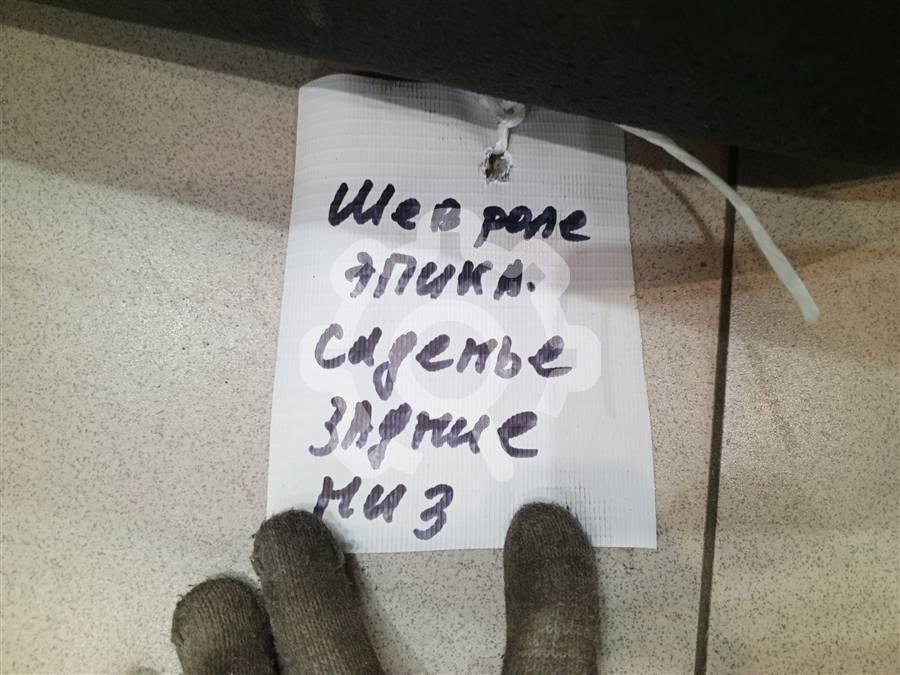 Шевроле
ЭПИКА.
сиденье
ЗАДние
низ